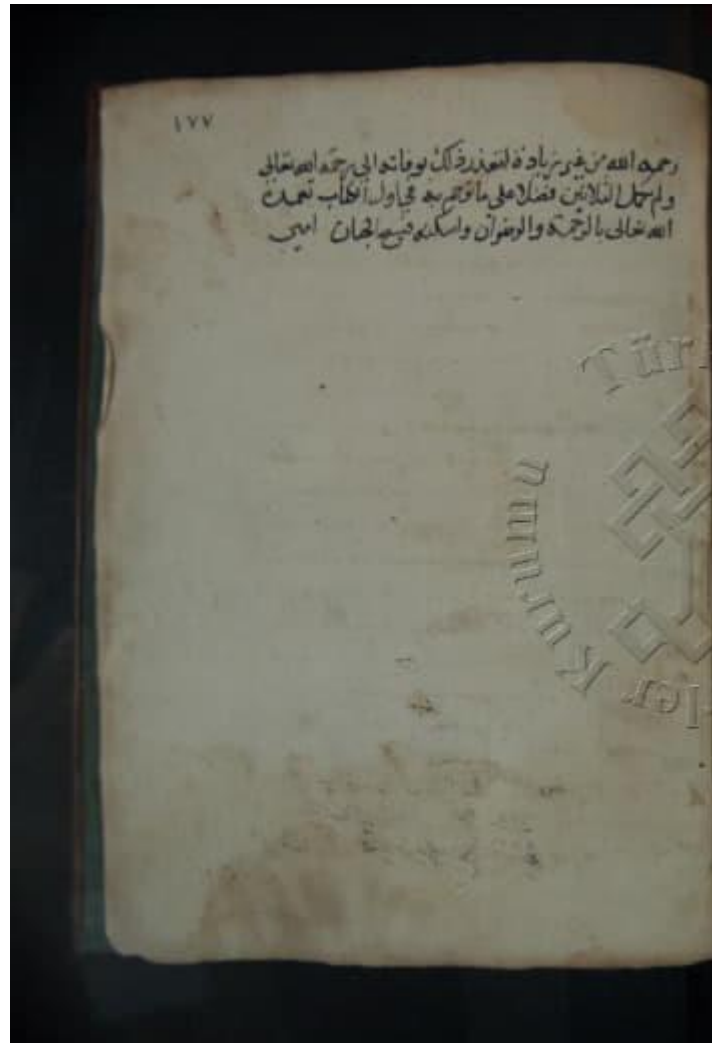 ١٧٧
رحمه الله من غير زيادة لتعذر ذلك بوفاته الى رحمة الله تعالى
ولم يكمل الثلاثين فضلا على ما ترجم به في اول الكتاب تغمده
الله تعالى بالرحمة والرضوان واسكنه فسيح الجنان امين
Tür
ler Kurumu